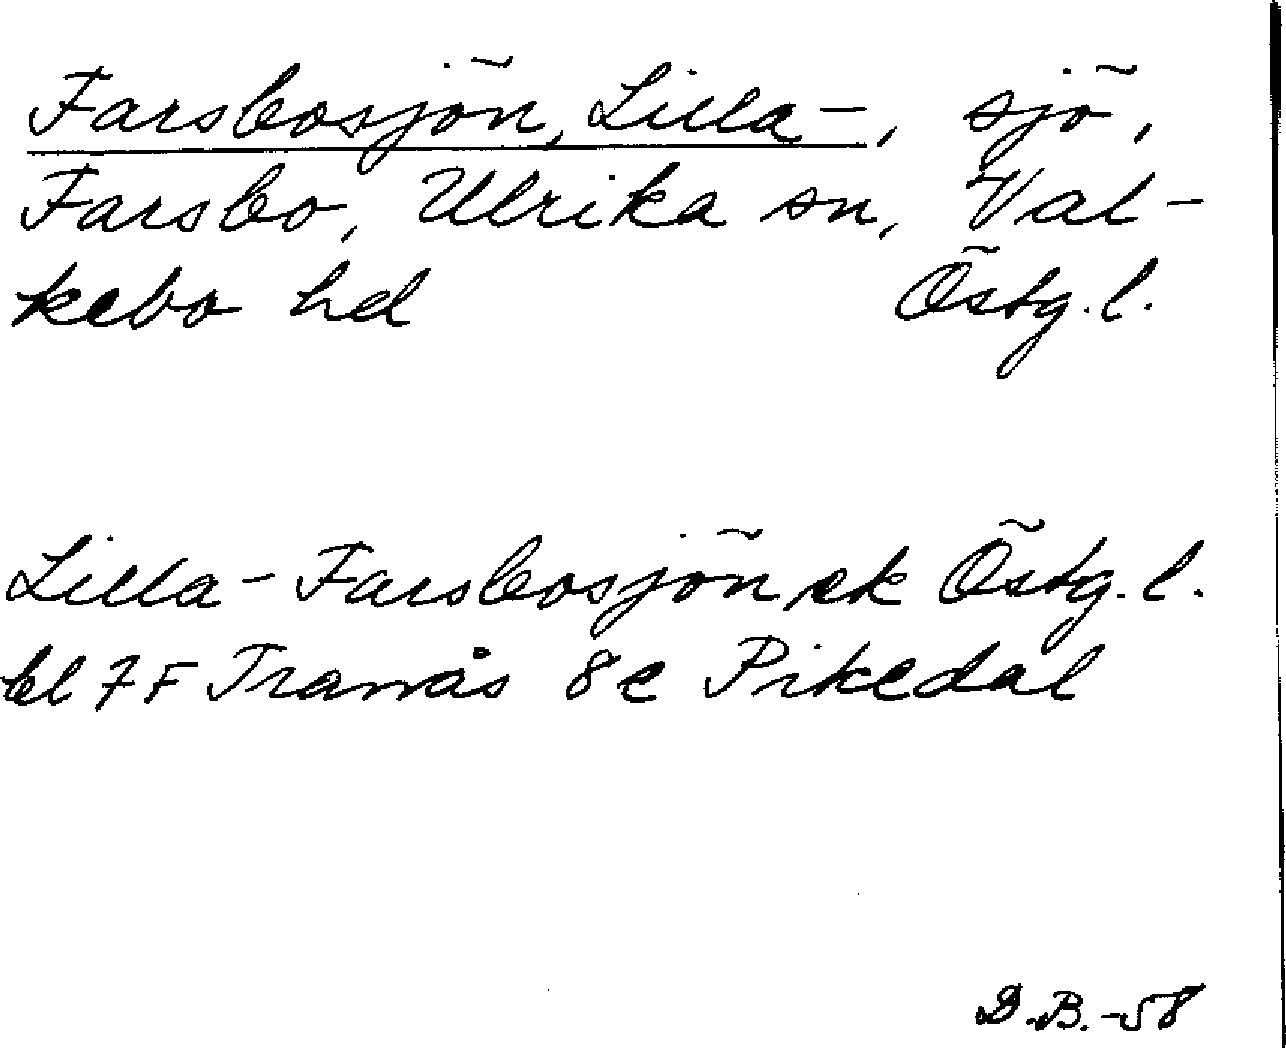 Farsbosjön, Lilla-, sjö,
Farsbo, Ulrika sn, Val-
kebo hd Östg. l.
Lilla-Farsbosjön ek Östg. l.
bl 7F Tranås 8e Pikedal
D.B.-58